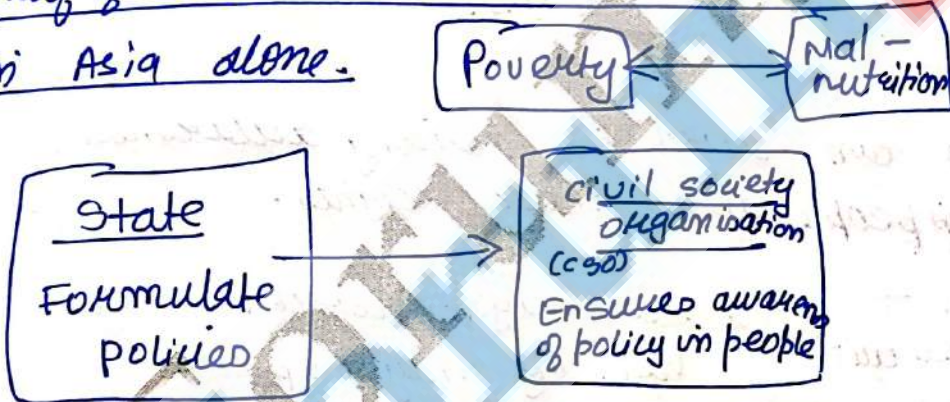 in Asia alone.
Poverty
Mal-
nutrition
State
Formulate
policies
Civil society
organisation
(CSO)
Ensures awaren
of policy in people